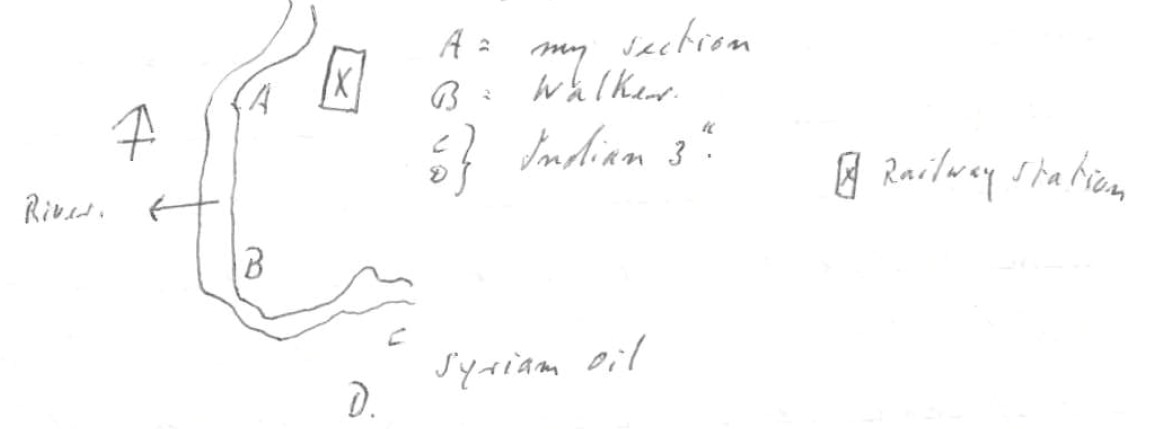 A = my section
A X
B = Walker.
C
D } Indian 3".
X Railway station
River.
B
C
Syriam oil
D.